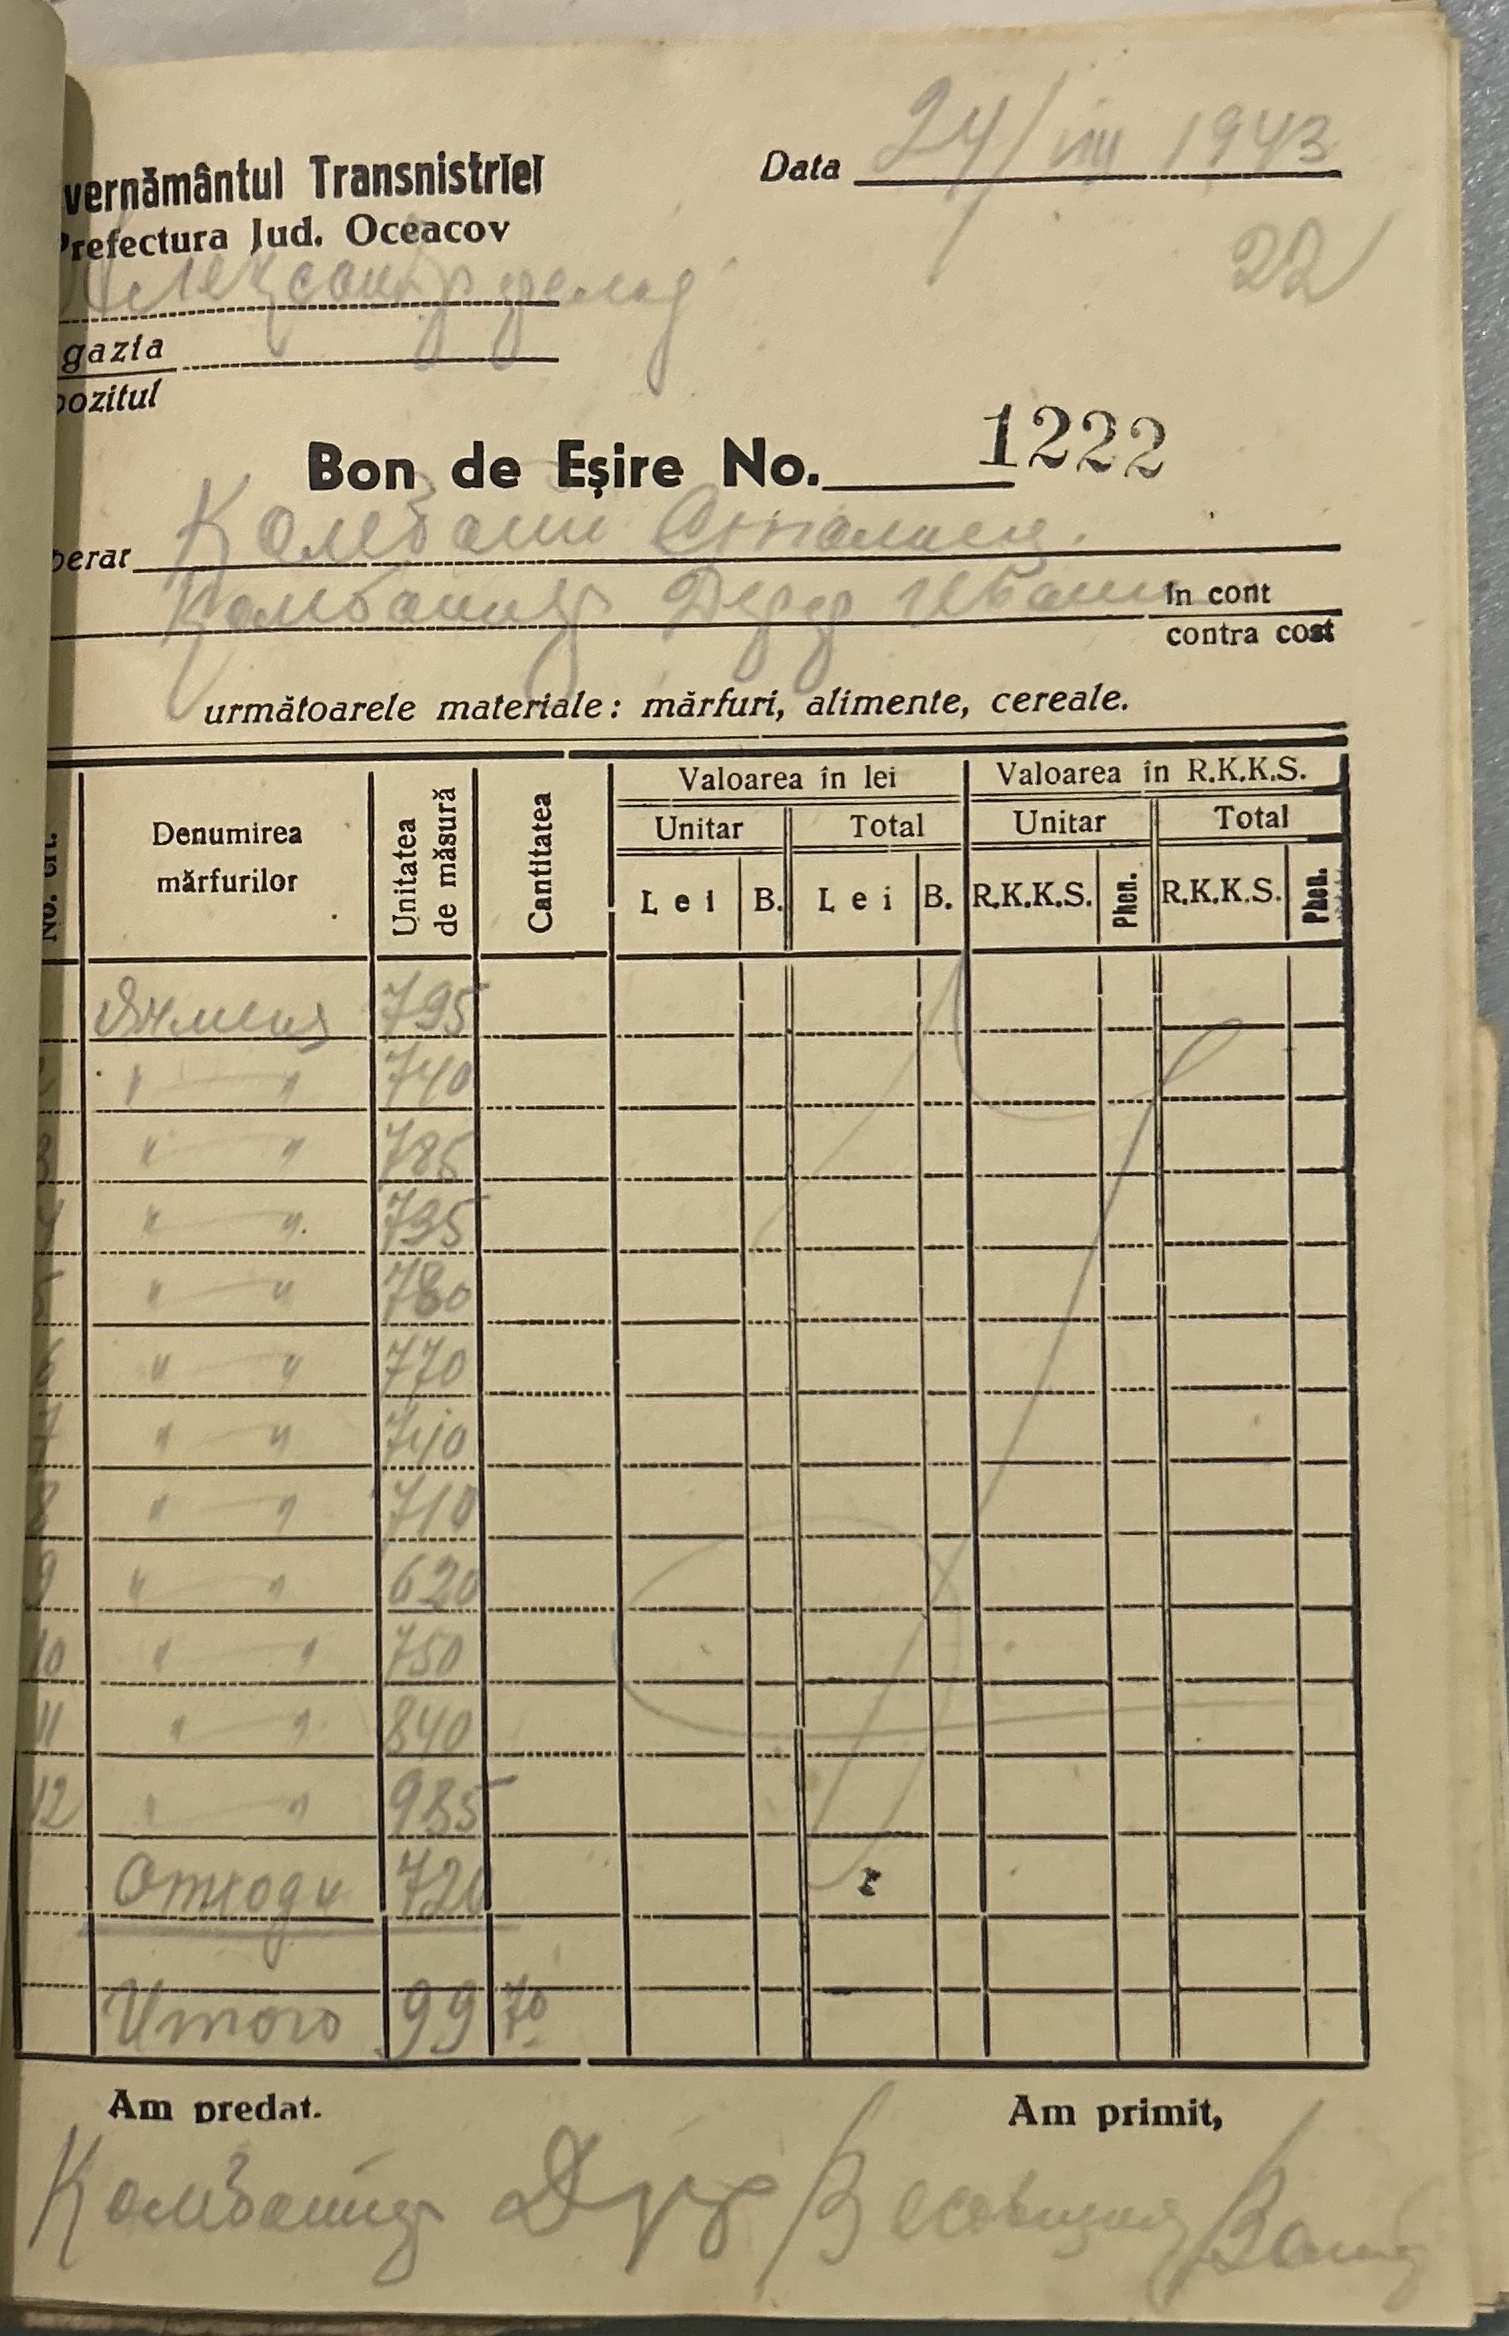 vernământul Transnistriei
Data 24/VIII 1943
Prefectura Jud. Oceacov
22
Александрфельд
gazia
pozitul
Bon de Eşire No. 1222
berat Комбайн Сталинец.
Комбайнер Дерр Иван în cont
contra cost
următoarele materiale: mărfuri, alimente, cereale.
No. crt. Denumirea mărfurilor Unitatea de măsură Cantitatea Valoarea în lei Valoarea în R.K.K.S.
Unitar Total Unitar Total
Lei B. Lei B. R.K.K.S. Phen. R.K.K.S. Phen.
Ячменя 795
" — " 740
3 " — " 785
4 " — " 735
5 " — " 780
6 " — " 770
7 " — " 740
8 " — " 710
9 " — " 620
10 " — " 750
11 " — " 840
12 " — " 985
Отходи 720
Итого 9970
Am predat. Am primit,
Комбайнер Весовщик